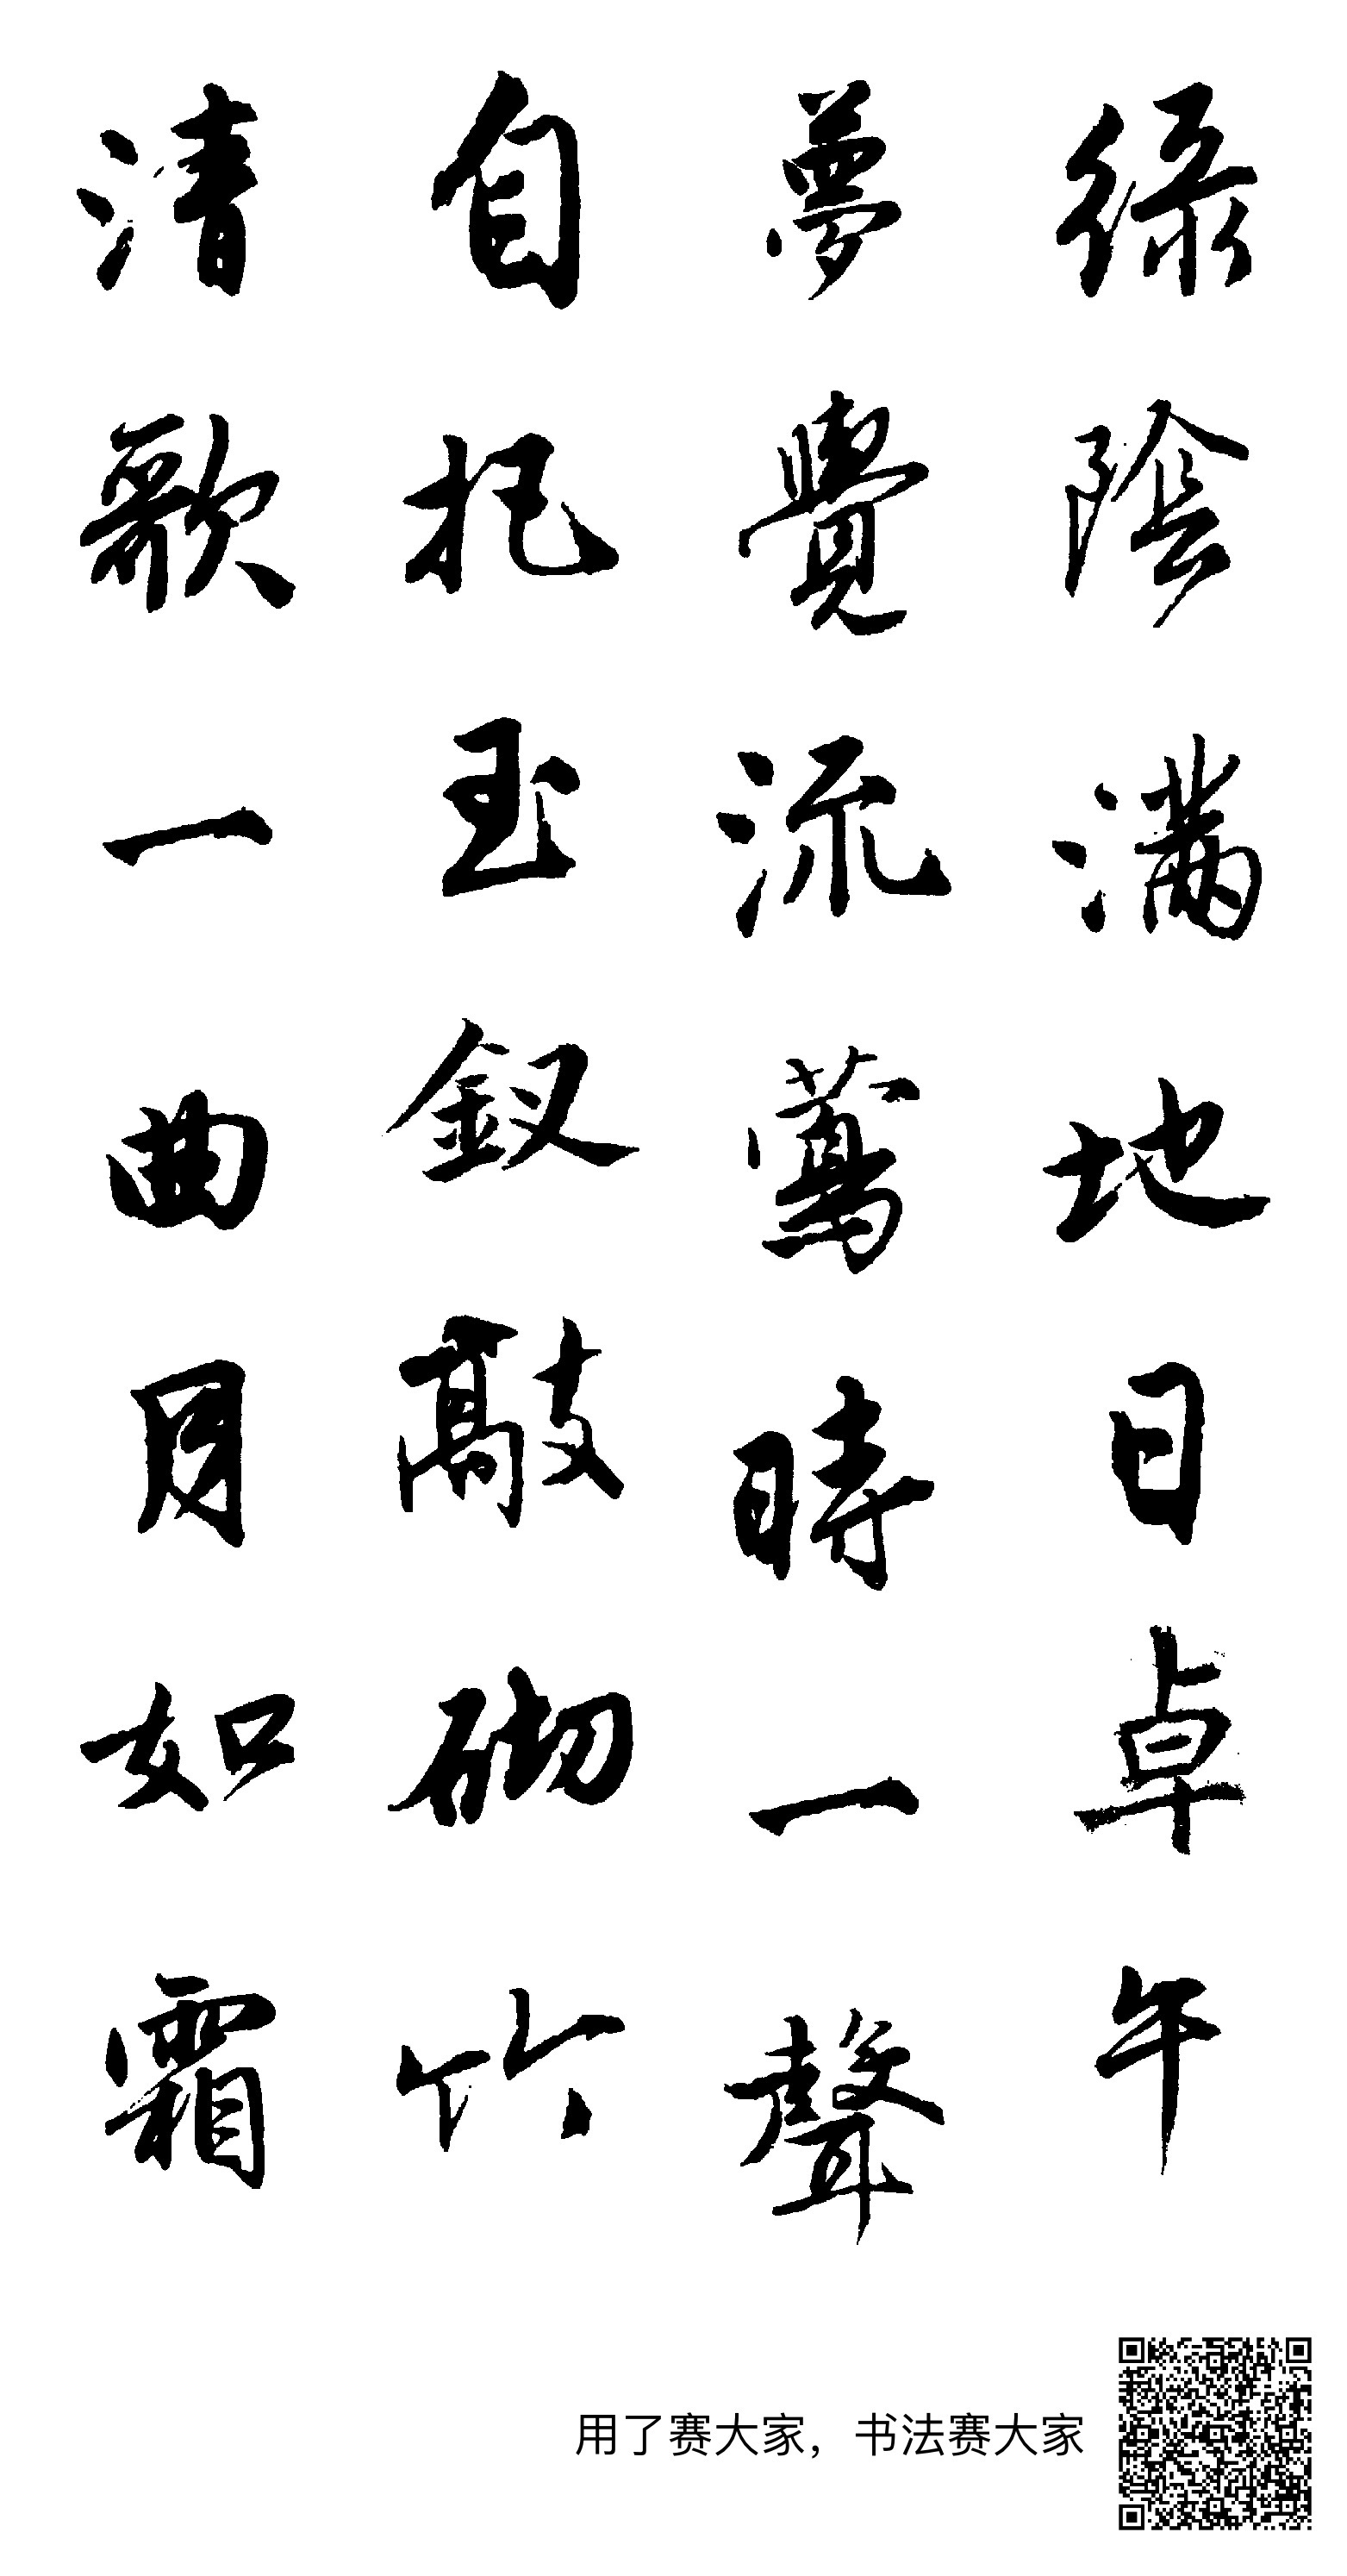 綠陰满地日卓午
夢覺流鶯時一聲
自把玉釵敲砌竹
清歌一曲月如霜
用了赛大家，书法赛大家